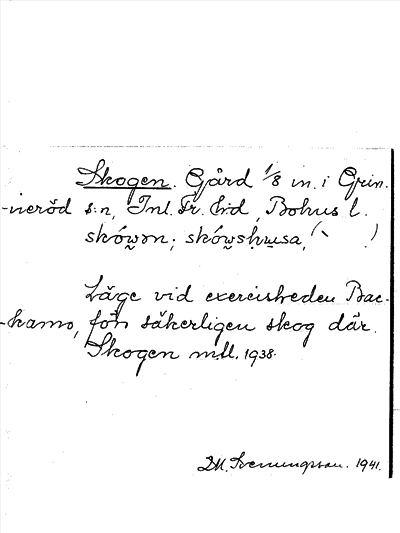 Skogen. Gård 1/8 m. i Grin-
-neröd s:n, Inl. Fr. h:d, Bohus l.
skówən; skówshusa, (` )
Läge vid exercisheden Bac-
-kamo, förr säkerligen skog där.
Skogen m.fl. 1938.
1941.